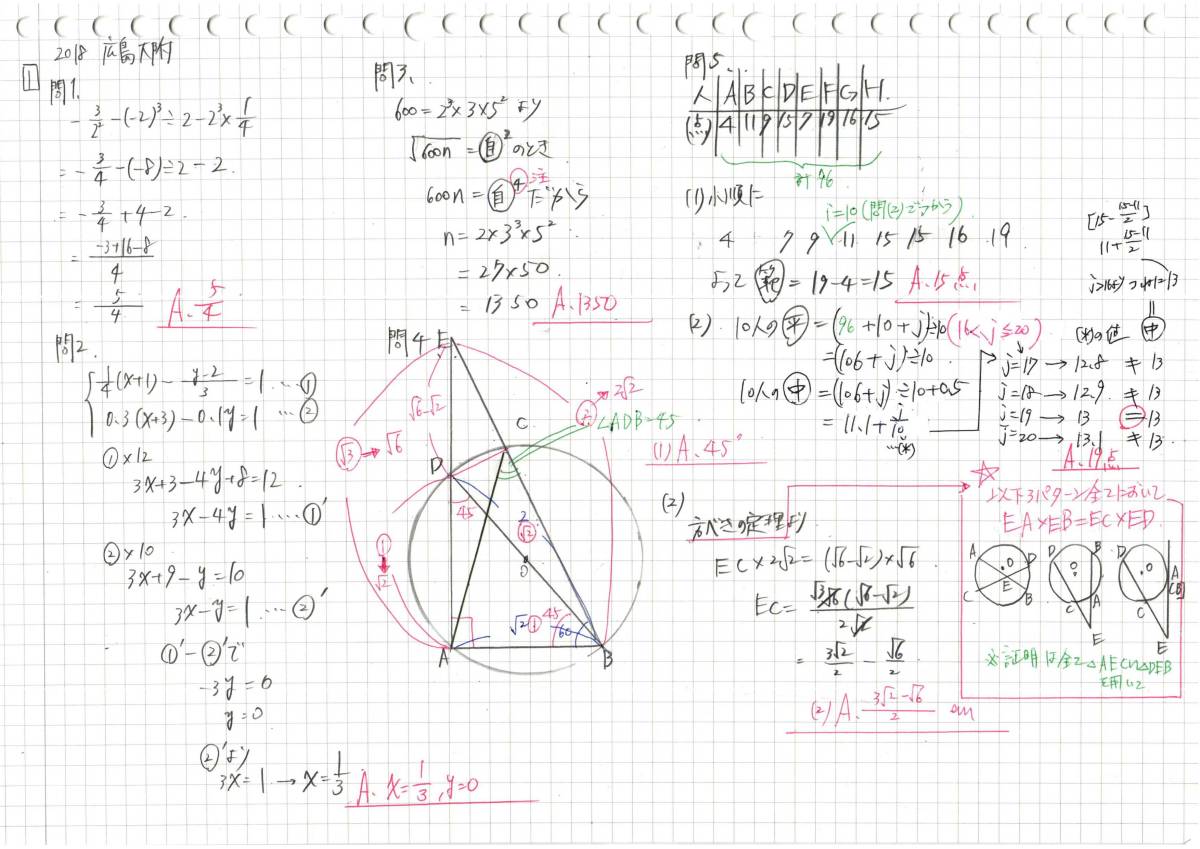 2018 広島大附
1
問1.
-3/2² -(-2)³÷2-2³×1/4
= -3/4 -(-8)÷2-2.
= -3/4 +4-2.
= (-3+16-8)/4
= 5/4 A. 5/4
問2.
1/4(x+1) - (y-2)/3 = 1 … ①
0.3(x+3)-0.1y=1 … ②
①×12
3x+3-4y+8=12
3x-4y=1 … ①'
②×10
3x+9-y=10
3x-y=1 … ②'
①'-②'で
-3y=0
y=0
②'より
3x=1 → x=1/3 A. x=1/3, y=0
問3.
600=2³×3×5² より
√600n = 自² のとき
注
600n = 自⁴ だから
n=2×3³×5²
=27×50
=1350 A.1350
問4
E
√6-√2
√3→√6
②→2√2
∠ADB=45
C
D
45
2
√2
①
↓
√2
O
√2 ①
45
60
A
B
(1) A. 45°
(2)
方べきの定理より
EC×2√2=(√6-√2)×√6
EC= √3√6(√6-√2)/2√2
= 3√2/2 - √6/2
(2) A. (3√2-√6)/2 cm
☆
以下3パターン全てにおいて
EA×EB=EC×ED
A D O E C B
D B O C A E
D O A (B) C E
※証明は全て△AEC∽△DEB
を用いて
問5.
人 A B C D E F G H.
(点) 4 11 9 15 7 19 16 15
計96
(1) 小順に
i=10(問(2)でつかう)
4 7 9 11 15 15 16 19
よって 範 = 19-4=15 A.15点
(2). 10人の平=(96+10+j)÷10 (16<j≤20)
=(106+j)÷10
10人の中=(106+j)÷10+0.5
=11.1+j/10
…(*)
[15-(15-11)/2]
11+(15-11)/2
j>16より つねに=13
||
(*)の値 中
j=17 → 12.8 ≠ 13
j=18 → 12.9 ≠ 13
j=19 → 13 = 13
j=20 → 13.1 ≠ 13
A.19点